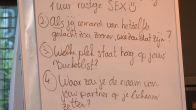 1 uur rustige SEX ☺
② Als je iemand van hetzelfde
geslacht zou zoenen, wie zou dat zijn?
③ Welke plek staat hoog op jouw
Bucketlist?
④ Waar zou je de naam van
jouw partner op je lichaam
zetten?